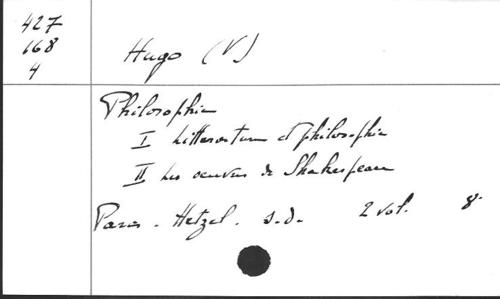 427
168
4
Hugo (V)
Philosophie
I Litterature et philosophie
II Les oeuvres de Shakespeare
Paris. Hetzel. s.d. 2 vol. 8°